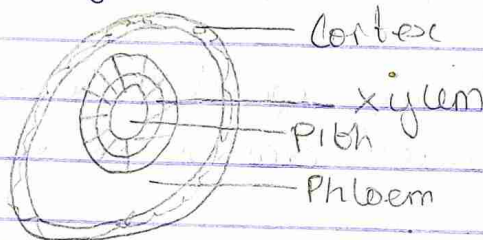 Cortex
Xylem
Pith
Phloem